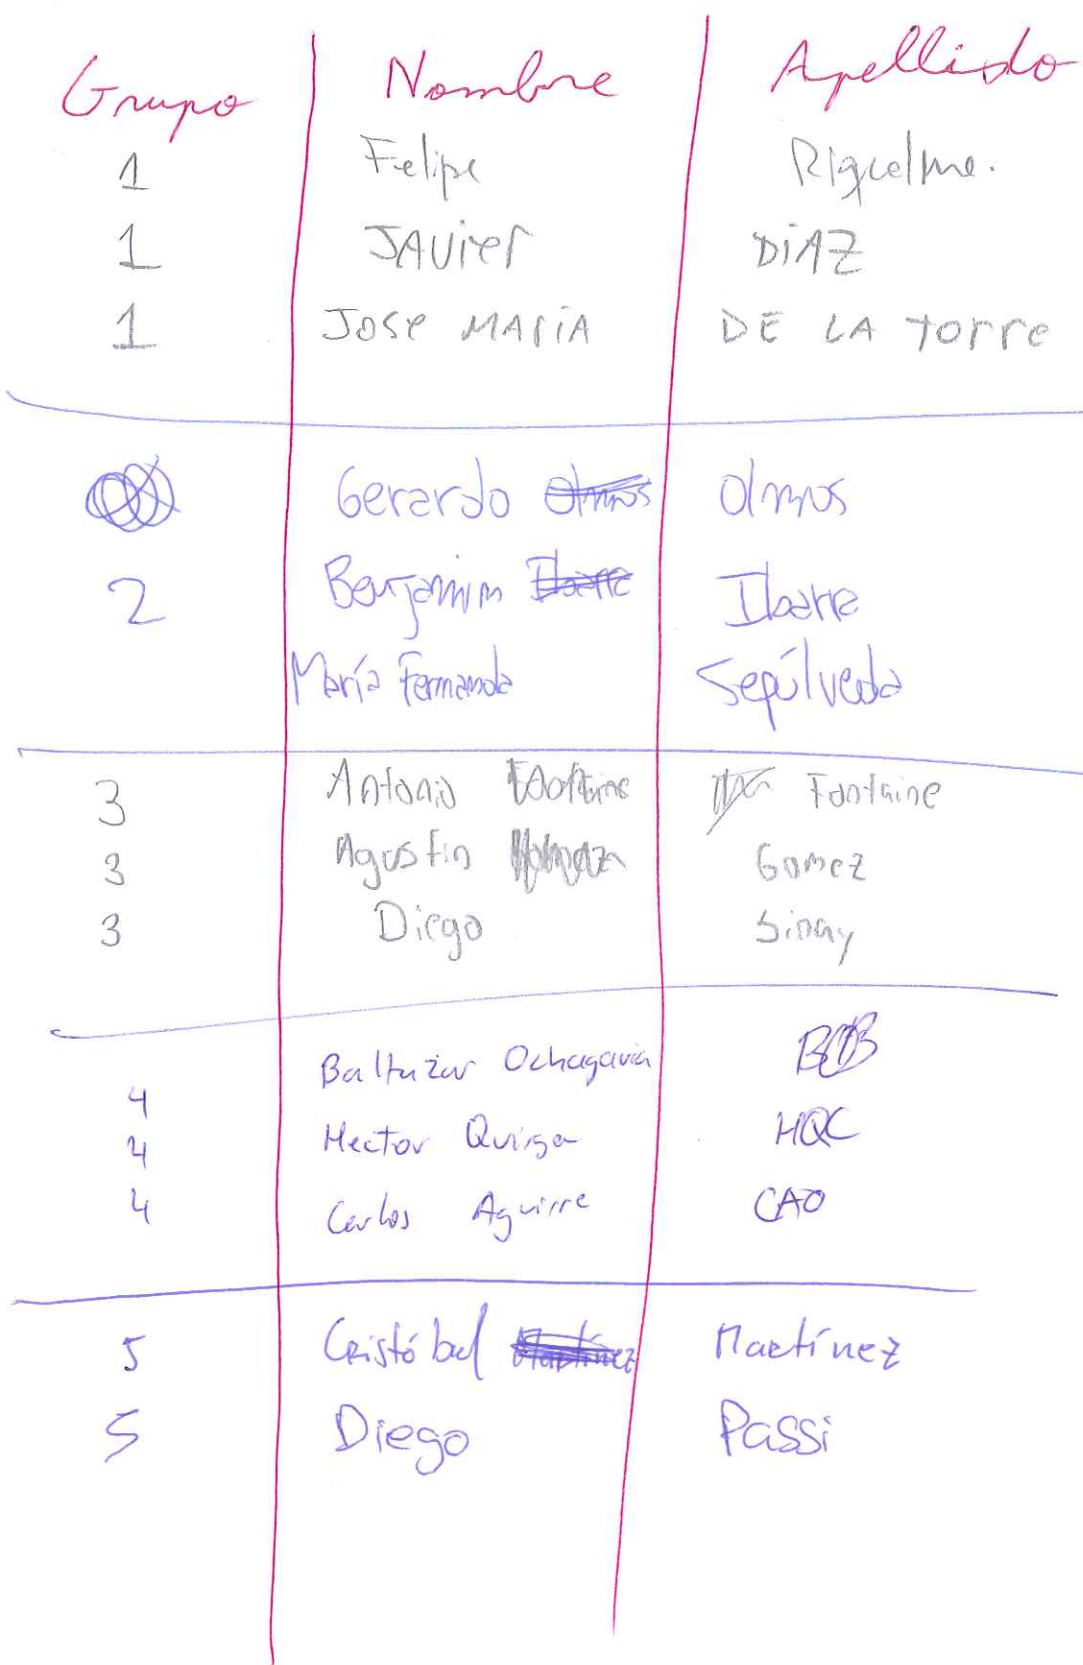 Grupo Nombre Apellido
1 Felipe Riquelme.
1 JAVIER DiAZ
1 JOSE MARiA DE LA TORRE
Gerardo Olmos Olmos
2 Benjamim Ibarra Ibarra
María Fernanda Sepúlveda
3 Antonio Fontaine Fontaine
3 Agustin Gomez
3 Diego Sinay
Baltazar Ochagavia
4
4 Hector Quiroga HQC
4 Carlos Aguirre CAO
5 Cristóbal Martínez Martínez
5 Diego Passi